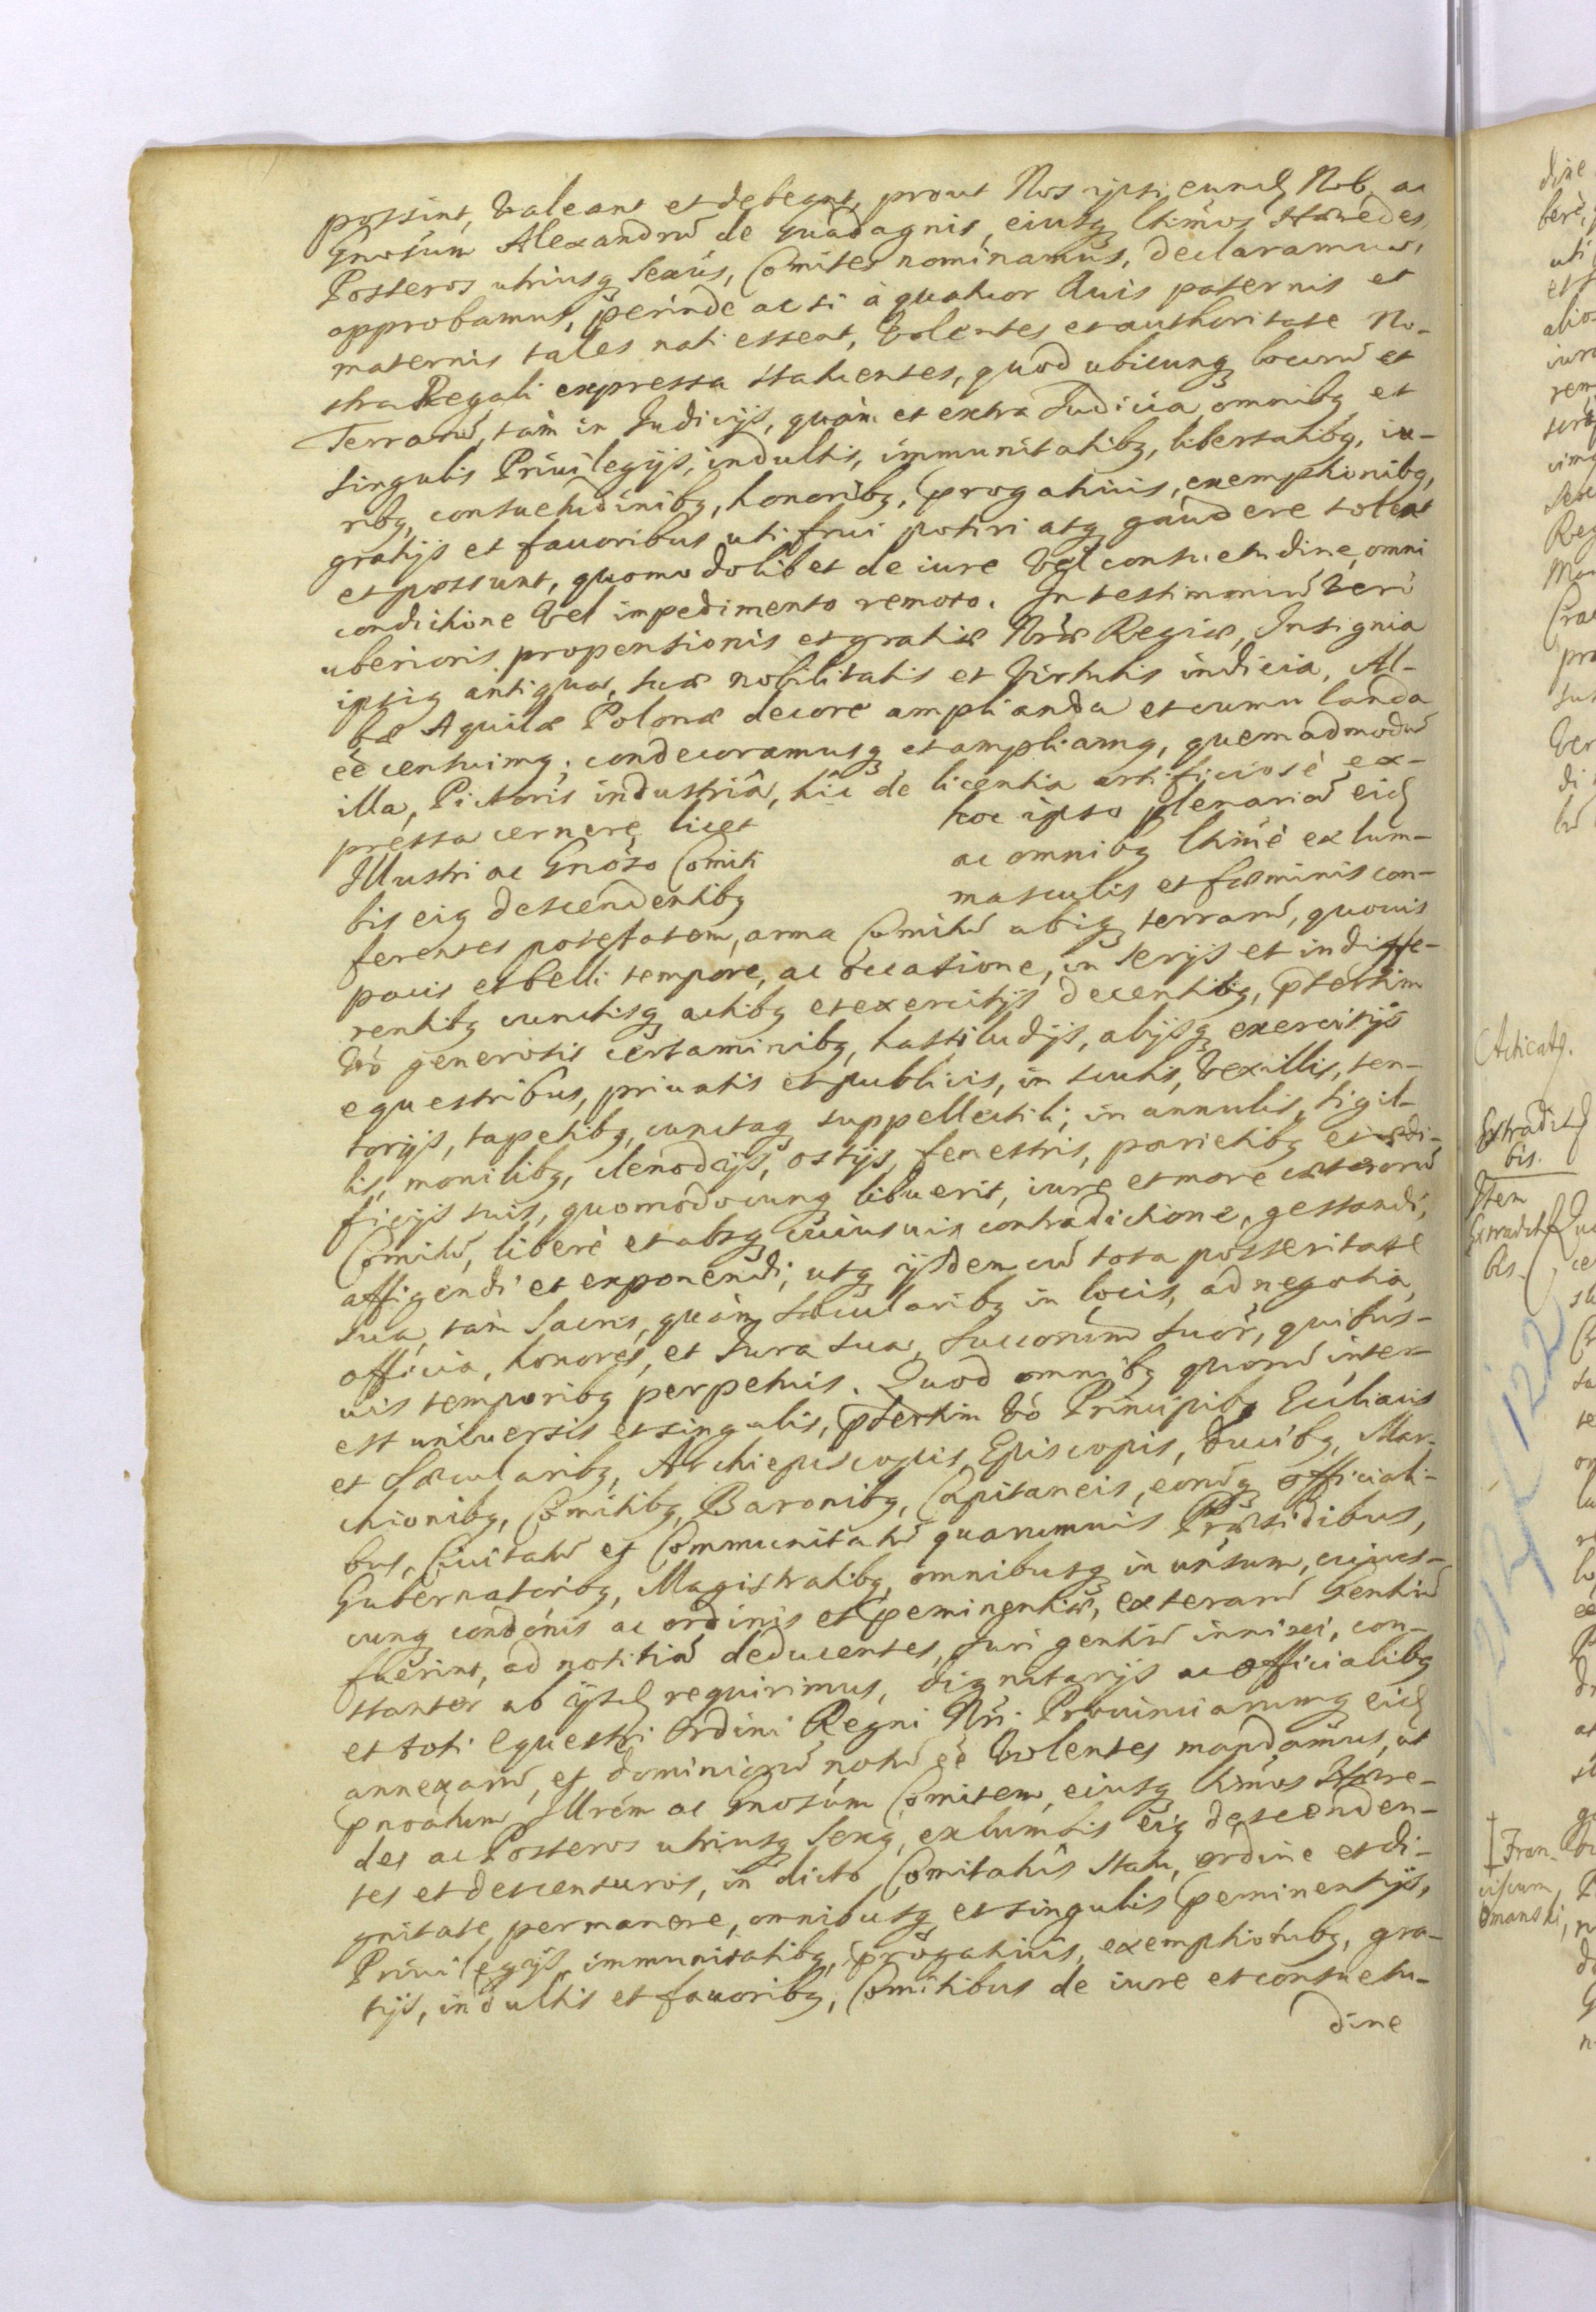 possint, valeant et debeant, prout Nos ipsi eund Nob. ac
Gnosum Alexandrū de Guadagnis, eiusq ltimos Hæredes
Posteros utriusq Sexus, Comites nominamus, declaramus,
approbamus, perinde ac si à quatuor Auis paternis et
maternis tales nati essent, volentes et authoritate No-
stra Regali expressa statuentes, quod ubicunq locorū et
Terrarū, tàm in Iudicijs, quàm et extra Iudicia, omnibq et
singulis Priuilegijs, indultis, immunitatibq, libertatibq, iu-
ribq, consuetudinibq, honoribq, progatiuis, exemptionibq,
gratijs et fauoribus uti frui potiri atq gaudere solent
et possunt, quomodolibet de iure vel consuetudine, omni
conditione vel impedimento remoto. In testimoniū verò
uberioris propensionis et gratiæ Nræ Regiæ, Insignia
ipsiq antiqua, suæ nobilitatis et virtutis indicia, Al-
bæ Aquilæ Polonæ decore amplianda et cumulanda
eē censuimq, condecoramusq et ampliamq, quemadmodū
illa, Pictoris industriâ, hîc de licentia artificiosè ex-
pressa cernere licet hoc ipso plenariā eid
Illustri ac Gnoso Comiti ac omnibq ltimè ex lum-
bis eiq descendentibq masculis et fœminis con-
ferentes potestatem, arma Comitū ubiq terrarū, quouis
pacis et belli tempore, ac occasione, in serijs et indiffe-
rentibq cunctisq actibq et exercitijs decentibq, pꝛsertim
vò generosis certaminibq, hastiludijs, alijsq exercitijs
equestribus, priuatis et publicis, in scutis, vexillis, ten-
torijs, tapetibq, cunctaq suppellectili; in annulis, sigil-
lis, monilibq, clenodijs, ostijs, fenestris, parietibq et ædi-
ficijs suis, quomodocunq libuerit, iure et more cæterorū
Comitū, liberè et absq cuiusuis contradictione, gestandi,
affigendi et exponendi; utq ijsdem cū tota posteritate
sua, tàm Sacris, quàm Sæcularibq in locis, ad negotia,
officia, honores, et Iura sua, Succorumq suor, quibus-
uis temporibq perpetuis. Quod omnibq quorū inter-
est uniuersis et singulis, pꝛsertim vò Principibq Ecclîacis
et Sæcularibq, Archiepiscopis, Episcopis, Ducibq, Mar-
chionibq, Comitibq, Baronibq, Capitaneis, eorūq officiali-
bus, Ciuitatū et Communitatū quarumuis Præsidibus,
Gubernatoribq, Magistratibq, omnibusq in unsum, cujus-
cunq condonis ac ordinis et peminentiæ, exterarū Gentiū
fuerint, ad notitiā deducentes, Iuri gentiū innixi, con-
stanter ab ijsd requirimus, dignitarijs ac officialibq
et toti equestri Ordini Regni Nri Prouinciarumq eid
annexarū, et dominiorū notū eē volentes mandamus, ut
pnoatum Illrem ac Gnosum Comitem, eiusq ltimos Hære-
des ac Posteros utriusq Sexq, ex lumbis eiq descenden-
tes et descensuros, in dicto Comitatûs Statu, ordine et di-
gnitate permanere, omnibusq et singulis peminentijs,
Priuilegijs, immunitatibq, progatiuis, exemptionibq, gra-
tijs, indultis et fauoribq, Comitibus de iure et consuetu-
dine
Acticatq.
Extradit
bis.
Item
Extradit
bis.
Fran-
ciscum